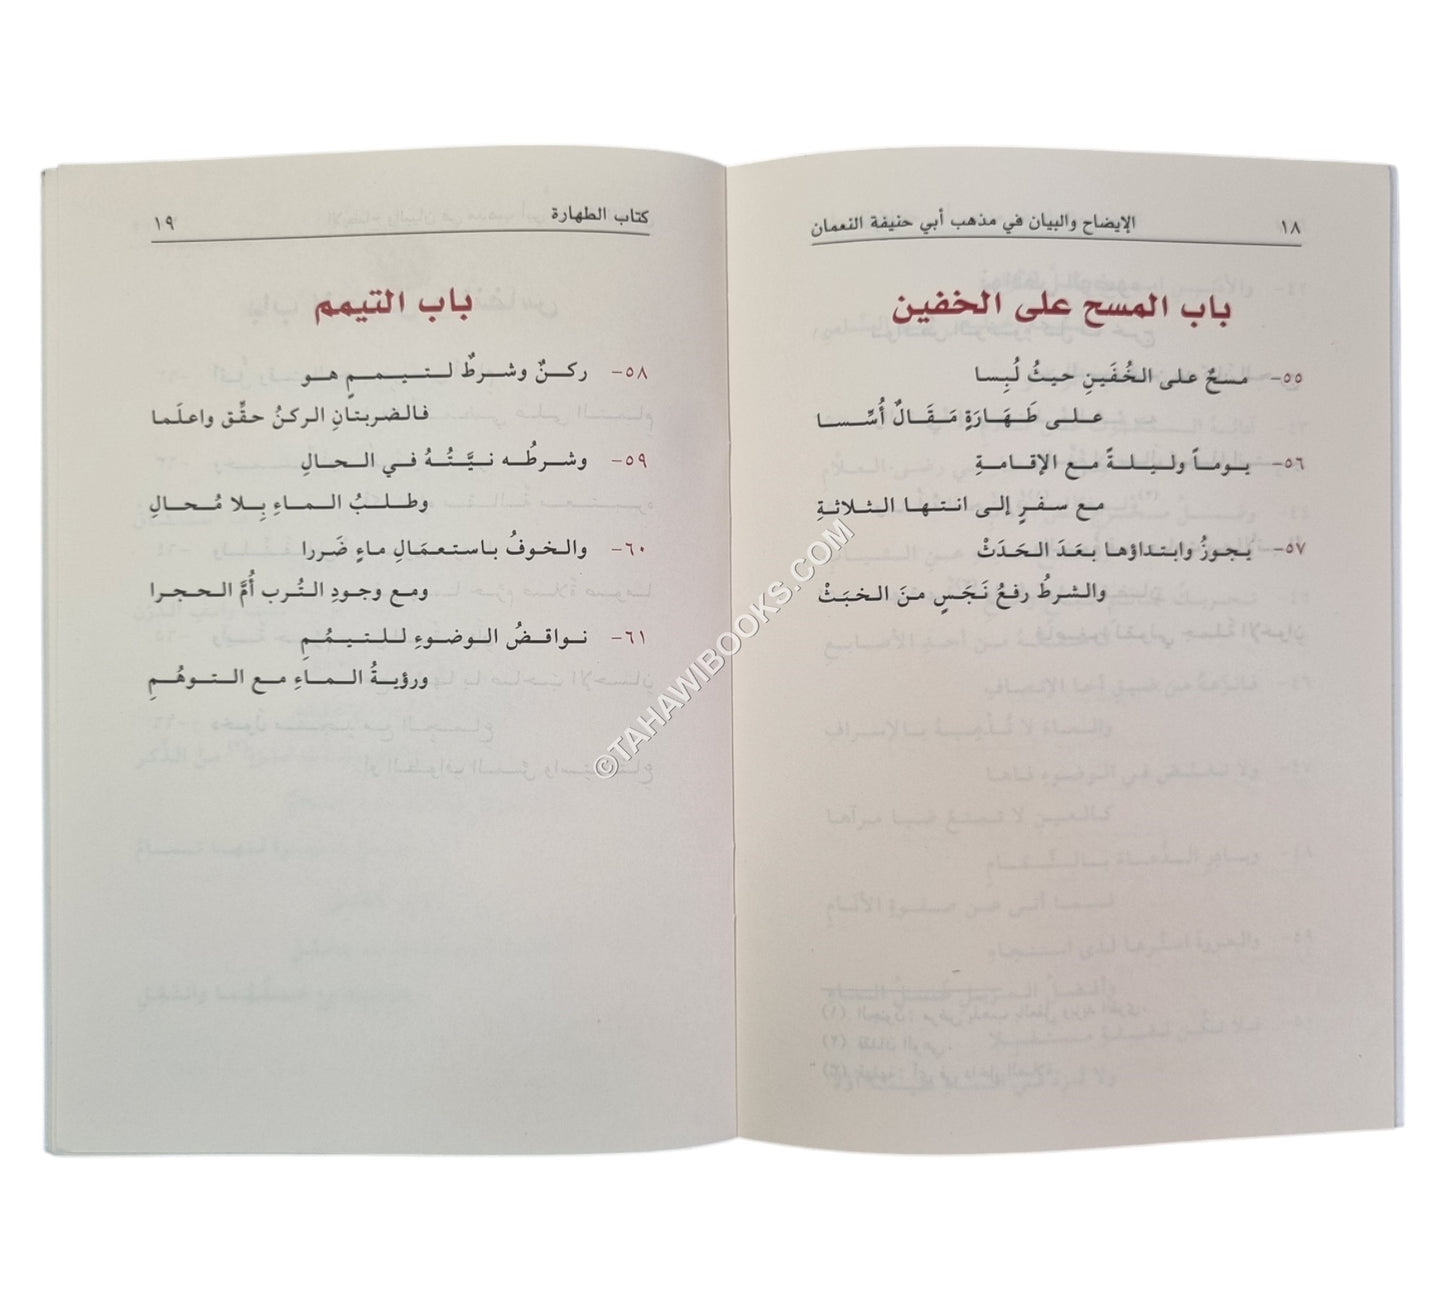 ١٨ الإيضاح والبيان في مذهب أبي حنيفة النعمان
باب المسح على الخفين
٥٥- مسحٌ على الخُفَينِ حيثُ لُبِسا
على طَهَارَةٍ مَقَالٌ أُسِّسا
٥٦- يوماً وليلةً مع الإقامةِ
مع سفرٍ إلى انتها الثلاثةِ
٥٧- يجوزُ وابتداؤها بعَدَ الحَدَثْ
والشرطُ رفعُ نَجَسٍ منَ الخبَثْ
كتاب الطهارة ١٩
باب التيمم
٥٨- ركنٌ وشرطٌ لتيممٍ هو
فالضربتانِ الركنُ حقِّق واعلَما
٥٩- وشرطُه نيَّتُهُ في الحالِ
وطلبُ الماءِ بِلا مُحالِ
٦٠- والخوفُ باستعمَالِ ماءٍ ضَررا
ومع وجودِ التُرب أُمَّ الحجرا
٦١- نواقضُ الوضوءِ للتيمُمِ
ورؤيةُ الماءِ مع التوهُمِ
©TAHAWIBOOKS.COM